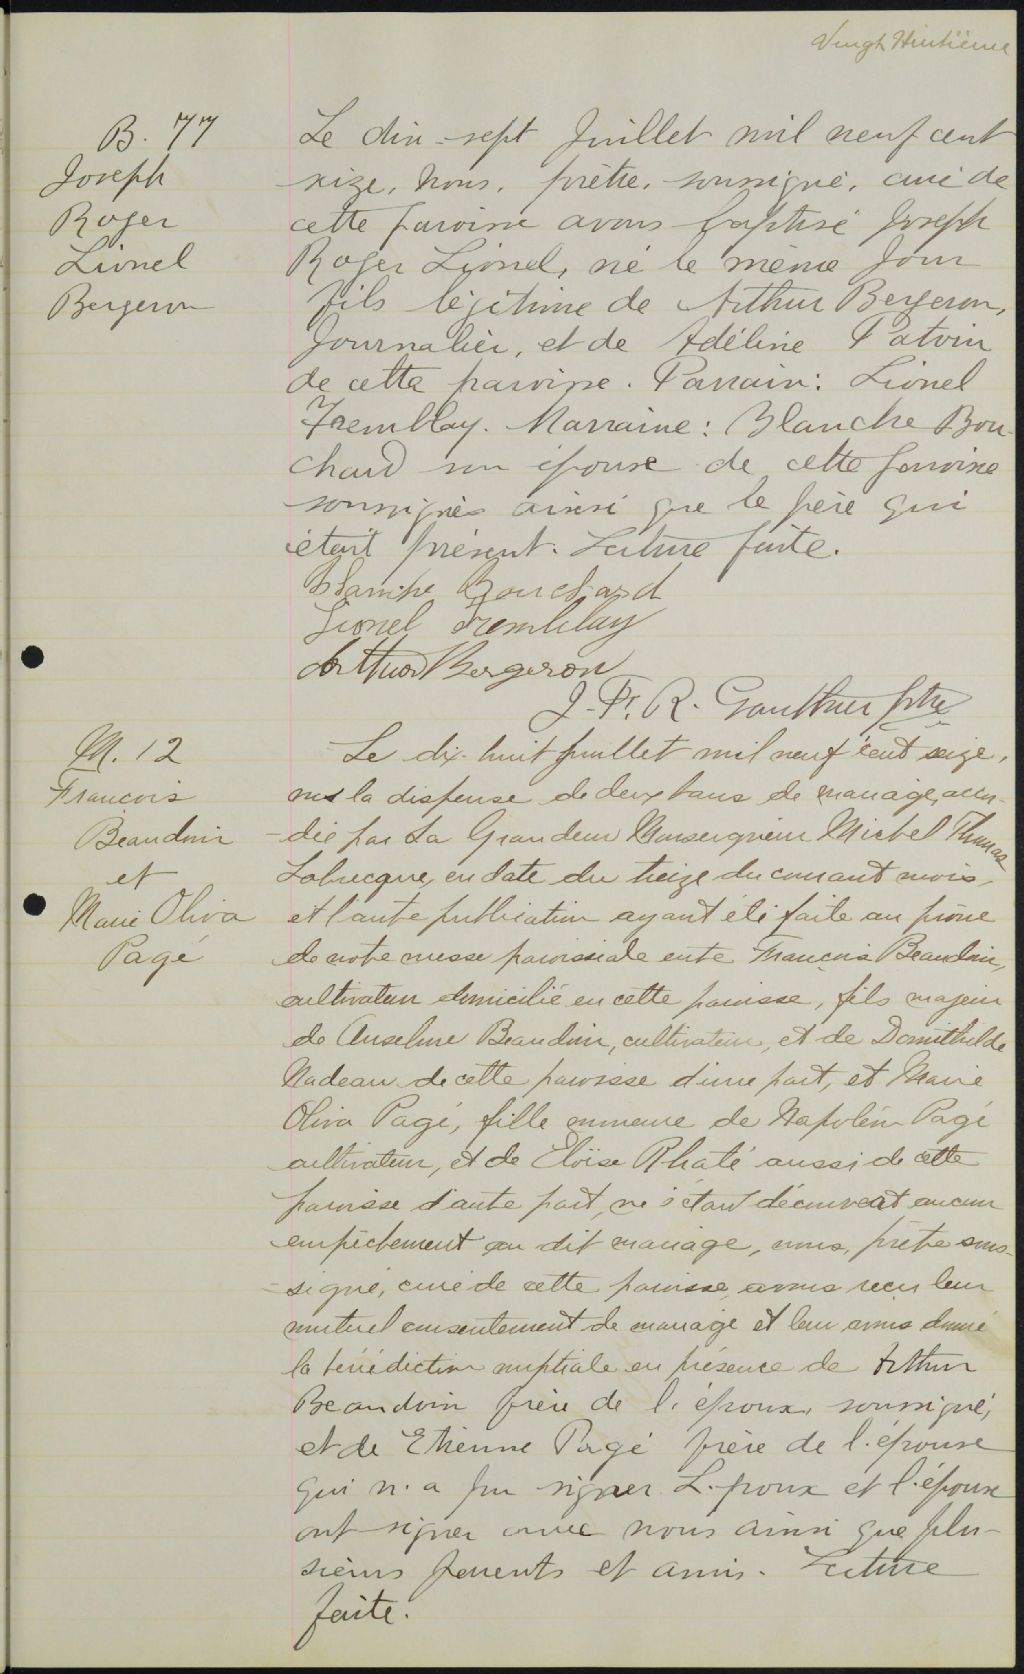 Vingt Huitième
B. 77
Joseph
Roger
Lionel
Bergeron
Le dix-sept Juillet mil neuf cent
seize, nous, prêtre, soussigné, curé de
cette paroisse avons baptisé Joseph
Roger Lionel, né le même jour
fils légitime de Arthur Bergeron,
Journalier, et de Adéline Patvin
de cette paroisse. Parrain: Lionel
Tremblay. Marraine: Blanche Bou-
chard son épouse de cette paroisse
soussignés ainsi que le père qui
était présent. Lecture faite.
Blanche Bouchard
Lionel Tremblay
Arthur Bergeron
J. Pr. R. Gauthier ptre
M. 12
François
Beaudoin
et
Marie Oliva
Pagé
Le dix-huit juillet mil neuf cent seize,
vu la dispense de deux bans de mariage, accor-
-dée par Sa Grandeur Monseigneur Michel Thomas
Labrecque, en date du treize du courant mois,
et l'autre publication ayant été faite au prône
de notre messe paroissiale entre François Beaudoin,
cultivateur domicilié en cette paroisse, fils majeur
de Anselme Beaudoin, cultivateur, et de Domithilde
Nadeau de cette paroisse d'une part, et Marie
Oliva Pagé, fille mineure de Napoléon Pagé
cultivateur, et de Eloïse Rhaté aussi de cette
paroisse d'autre part, ne s'étant découvert aucun
empêchement au dit mariage, nous, prêtre sous-
-signé, curé de cette paroisse, avons reçu leur
mutuel consentement de mariage et leur avons donné
la bénédiction nuptiale en présence de Arthur
Beaudoin frère de l'époux, soussigné,
et de Etienne Pagé frère de l'épouse
qui n'a pu signer. L'époux et l'épouse
ont signer avec nous ainsi que plu-
sieurs parents et amis. Lecture
faite.